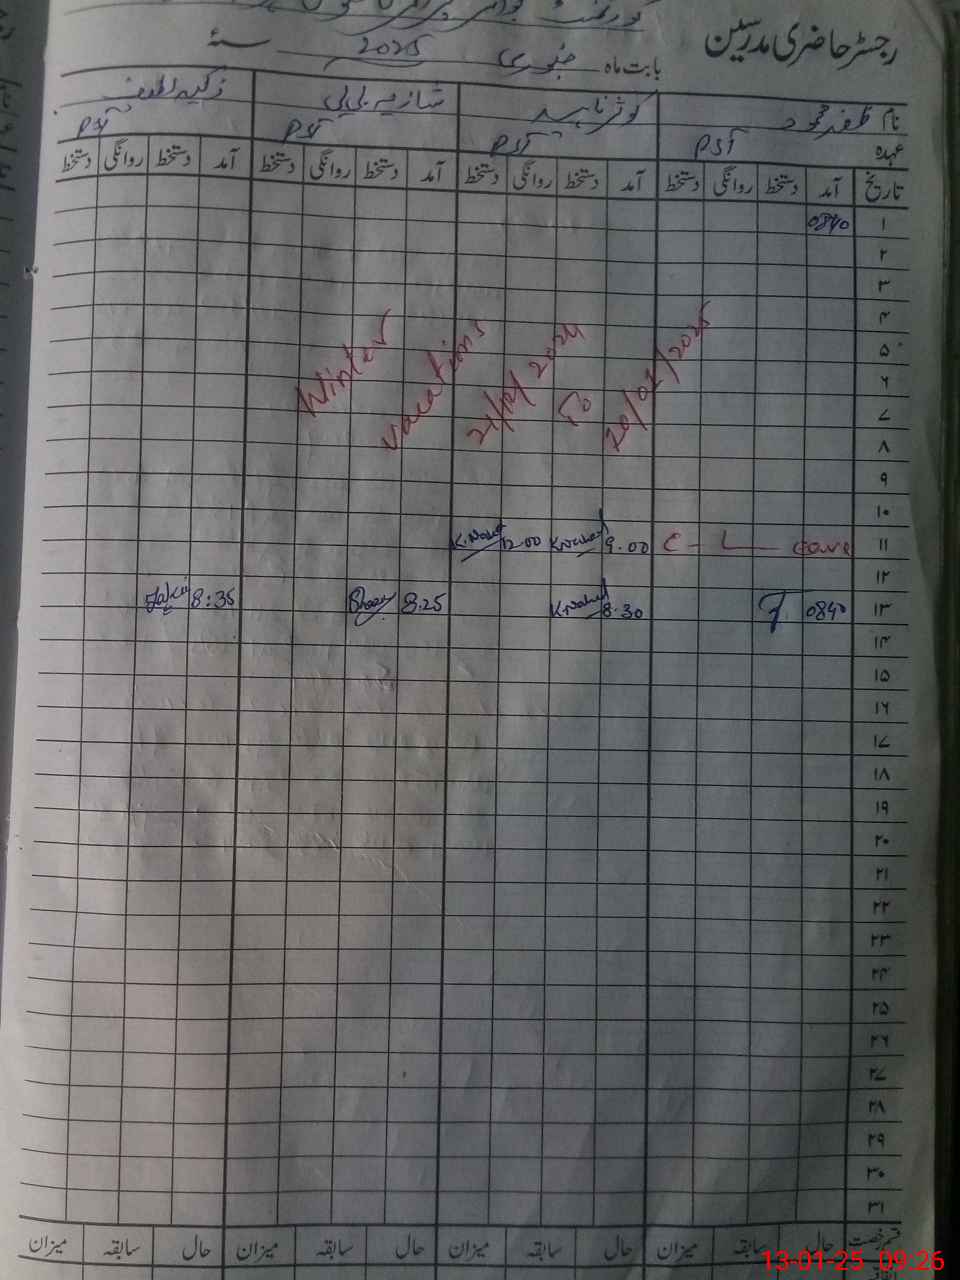 رجسٹر حاضری مدرسین
بابت ماہ جنوری 2025 سنہ
نام ظفر محمود کوثر ناہید شازیہ بی بی زکیہ لطیف
عہدہ PST PST PST PST
تاریخ آمد دستخط روانگی دستخط آمد دستخط روانگی دستخط آمد دستخط روانگی دستخط آمد دستخط روانگی دستخط
۱ 0840
۲
۳
۴
۵
۶
۷
۸
Winter vacations 21/12/2024 To 20/01/2025
۹
۱۰
۱۱ C - L 9.00 K.Nahed 12.00 K.Nahed
۱۲
۱۳ 0840 8.30 K.Nahed 8.25 8:35
۱۴
۱۵
۱۶
۱۷
۱۸
۱۹
۲۰
۲۱
۲۲
۲۳
۲۴
۲۵
۲۶
۲۷
۲۸
۲۹
۳۰
۳۱
قسم رخصت حال سابقہ میزان حال سابقہ میزان حال سابقہ میزان حال سابقہ میزان
13-01-25 09:26